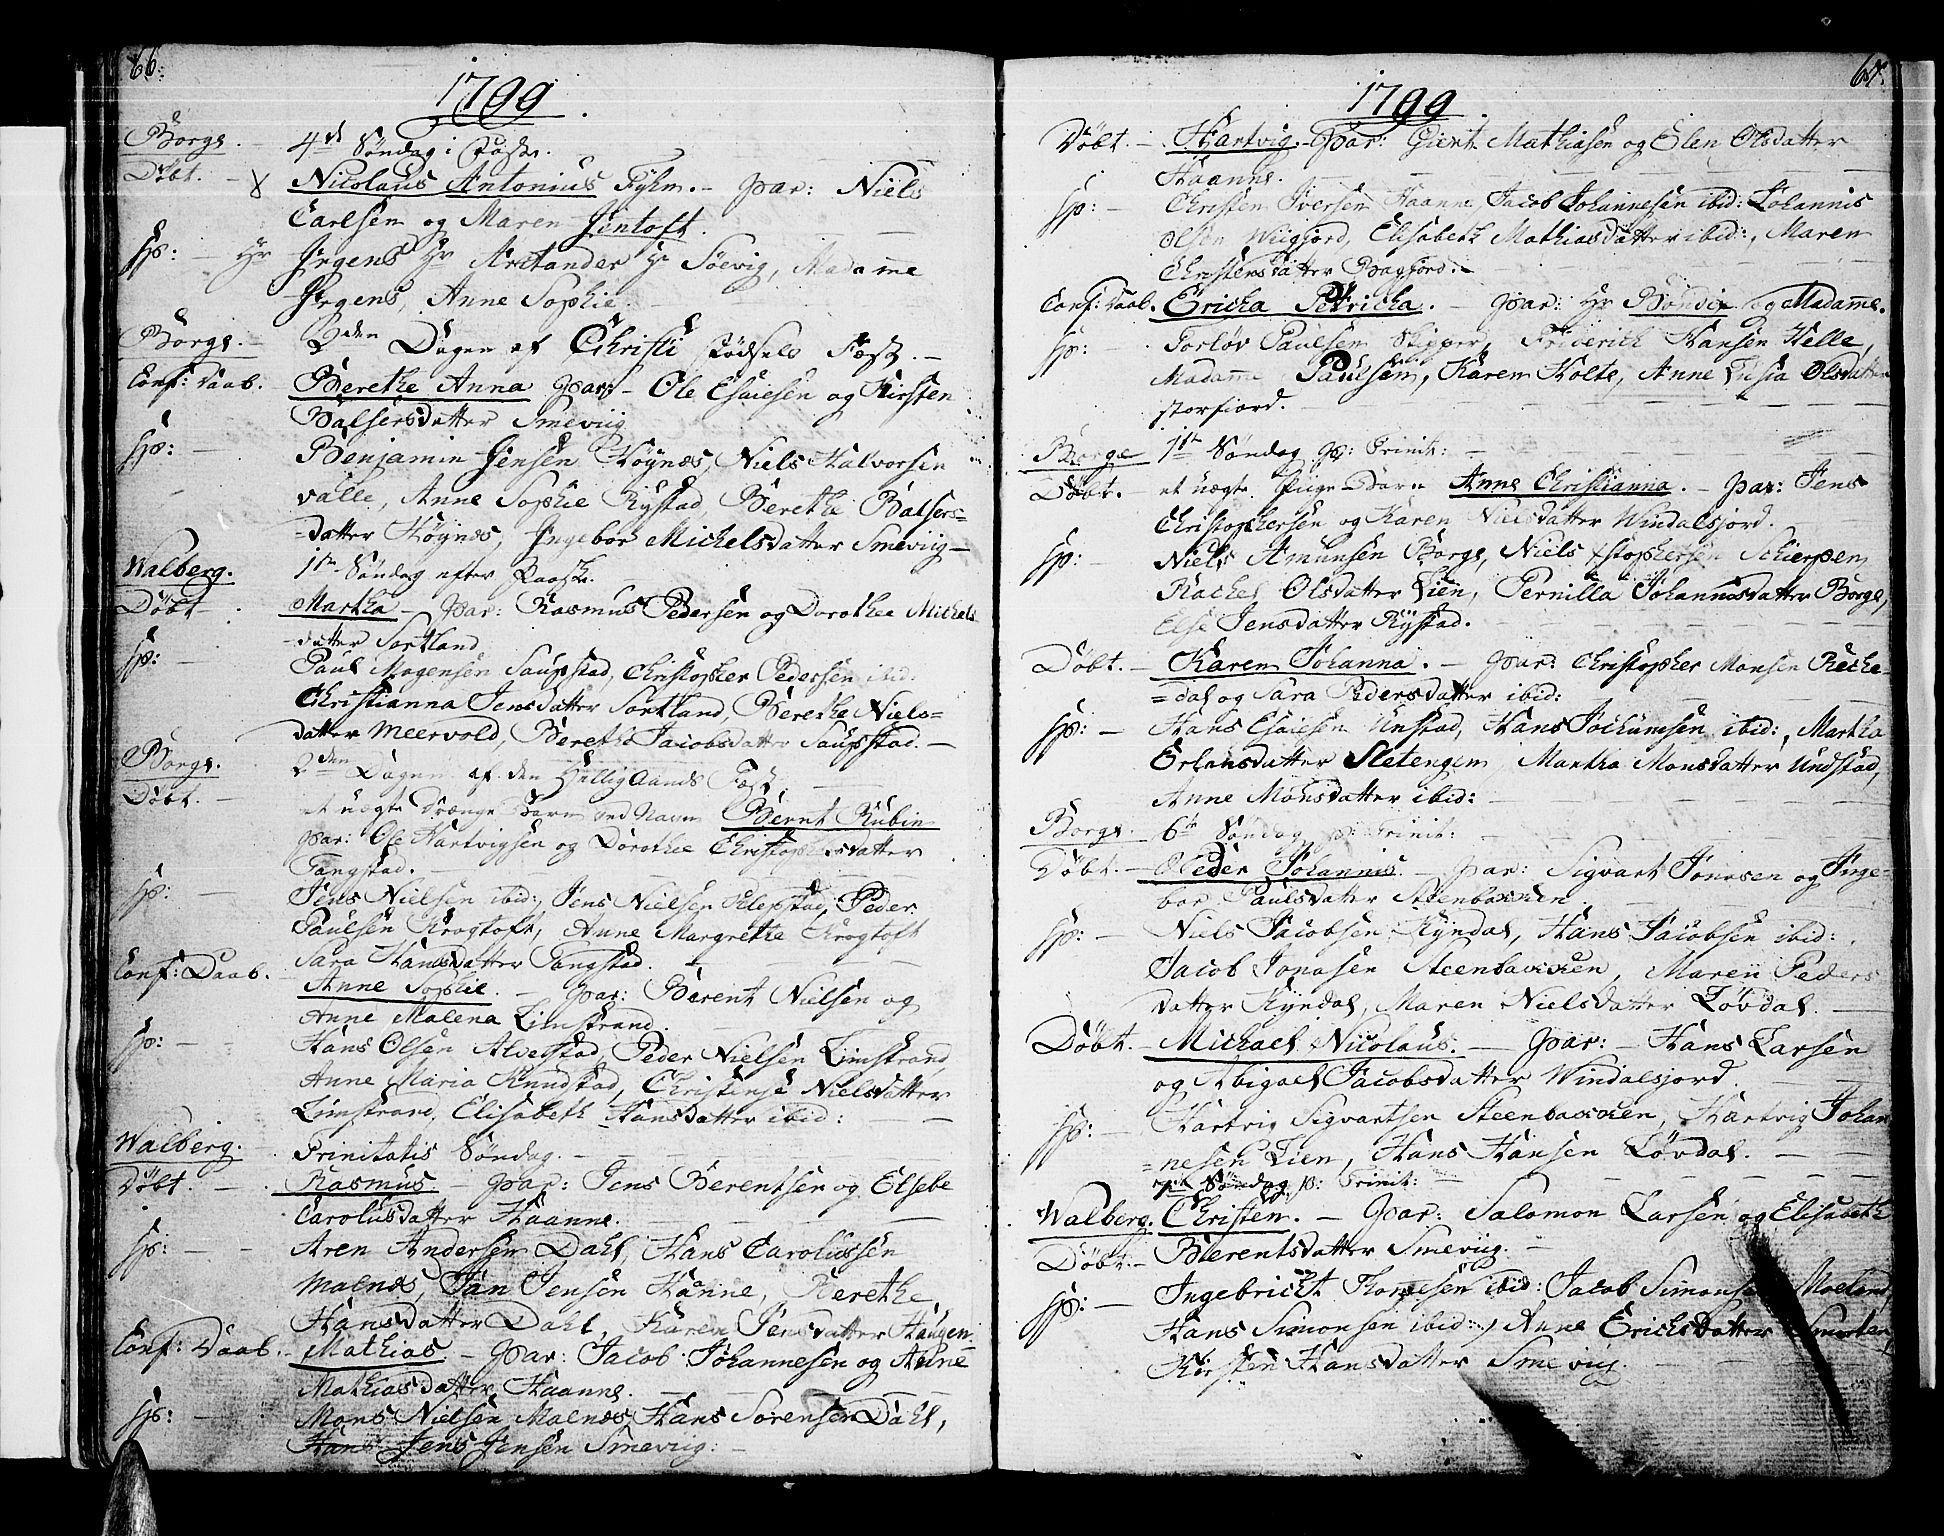 66.
1799.
Borge. - 4de Søndag i Faste.
Døbt. - Nicolaus Antonius Fyhn. - Par: Niels
Carlsen og Maren Jentoft.
Sp: - Hr Jrgens Hr Arctander Hr Søevig, Madame
Jrgens, Anne Sophie
Borge. 2den Dagen af Christi Fødsels Fæst. -
Conf: Daab. - Berethe Anna Par: - Ole Esaiesen og Kirsten
Balsersdatter Smeviig
Sp: Benjamin Jensen Høynæs, Niels Halvorsen
Valle, Anne Sophie Rystad, Berethe Balsers=
=datter Høynæs, Jngebor Michelsdatter Smeviig -
Walberg. 1te Søndag efter Paaske.
Døbt. Martha - Par: Rasmus Pedersen og Dorothee Michels
=datter Sortland
Sp: - Paul Mogensen Saupstad, Christopher Pedersen ibid:
Christianna Jensdatter Sortland, Berethe Niels=
datter Meervold, Berethe Jacobsdatter Saupstad. -
Borge. 2den Dagen af den Hellig Aands Fæst.
Døbt. - et uægte Drænge Barn ved Navn Bernt Rubin
Par: Ole Hartvigsen og Dorothee Christophersdatter
Tangstad. -
Sp: - Jens Nielsen ibid:, Jens Nielsen Klepstad, Peder
Paulsen Krogtoft, Anne Margrethe Krogtoft
Sara Hansdatter Tangstad.
Conf: Daab. - Anne Sophie. - Par: Berent Nielsen og
Anne Malena Limstrand.
Sp: - Hans Olsen Alvetstad, Peder Nielsen Limstrand
Anne Maria Knudstad, Christense Nielsdatter
Limstrand, Elisabeth Hansdatter ibid:
Walberg. Trinitatis Søndag. -
Døbt. - Rasmus - Par: Jens Berentsen og Elsebe
Carolusdatter Haanne.
Sp: - Aren Andersen Dahl, Hans Carolussen
Malnæs, Jan Jensen Hanne, Berethe
Hansdatter Dahl, Karen Jensdatter Haugen
Conf: Daab. - Mathias - Par: Jacob Johannesen og Anne
Mathiasdatter Haanne.
Sp: - Mons Nielsen Malnæs, Hans Sørensen Dahl,
Hans Jens Jensen Smeviig: -
67.
1799.
Døbt. - Hartvig. - Par: Giert Mathiasen og Elen Olsdatter
Haanne.
Sp: - Christen Iversen Haanne, Jacob Johannesen ibid: Johannis
Olsen Wiigjord, Elisabeth Mathiasdatter ibid:, Maren
Christensdatter Bagjord. -
Conf: Daab. Ericka Petricka. - Par: Hr Bonde og Madame.
Sp: Torløv Paulsen Skipper, Friderich Hansen Helle,
Madame Paulsen, Karen Holte, Anne Lusia Olsdatter
Storfiord.
Borge 1te Søndag p: Trinit: -
Døbt. - et uægte Piige Barn Anne Christianna. - Par: Jens
Christophersen og Karen Nielsdatter Windalsjord.
Sp: - Niels Amunsen Borge, Niels Xstophersen Schierpen
Rachel Olsdatter Lien, Pernilla Johannisdatter Borge,
Else Jensdatter Rystad.
Døbt. - Karen Johanna. - Par: Christopher Monsen Reche
=dal og Sara Pedersdatter ibid:
Sp: - Hans Esaiesen Unstad, Hans Jochumsen ibid:, Martha
Erlansdatter Sletengen, Martha Monsdatter Undstad,
Anne Monsdatter ibid: -
Borge. 6te Søndag p: Trinit: -
Døbt. - Peder Johannis. - Par: Sigvart Jonasen og Inge=
bor Paulsdatter Steenbakken
Sp: - Niels Jacobsen Kyndal, Hans Jacobsen ibid:
Jacob Jonasen Steenbakken, Maren Peders
datter Kyndal, Maren Nielsdatter Løvdal. -
Døbt. - Michael Nicolaus. - Par: - Hans Larsen
og Abigael Jacobsdatter Windalsjord.
Sp: - Hartvig Sigvartsen Steenbakken, Hartvig Johan
=nesen Lien, Hans Hansen Løvdal. -
7de Søndag p: Trinit: -
Walberg. Christen. - Par: Salomon Larsen og Elisabeth
Døbt. - Berentsdatter Smeviig. -
Sp: - Ingebricht Thomesen ibid: Jacob Simonsen Moeland
Hans Simonsen ibid:, Anne Erichsdatter Smorten,
Kirsten Hansdatter Smeviig.